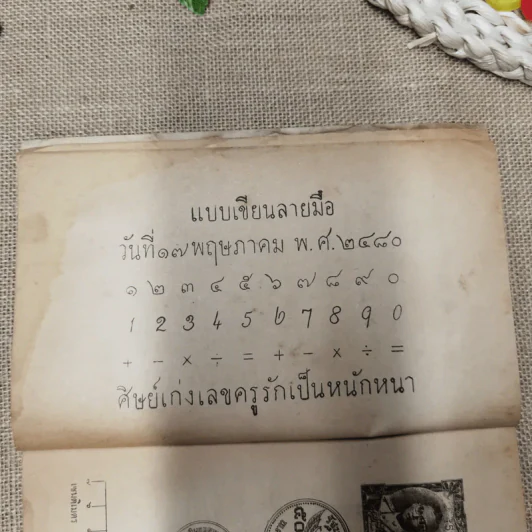 แบบเขียนลายมือ
วันที่๑๗พฤษภาคม พ.ศ.๒๔๘๐
๑ ๒ ๓ ๔ ๕ ๖ ๗ ๘ ๙ ๐
1 2 3 4 5 6 7 8 9 0
+ − × ÷ = + − × ÷ =
ศิษย์เก่งเลขครูรักเป็นหนักหนา